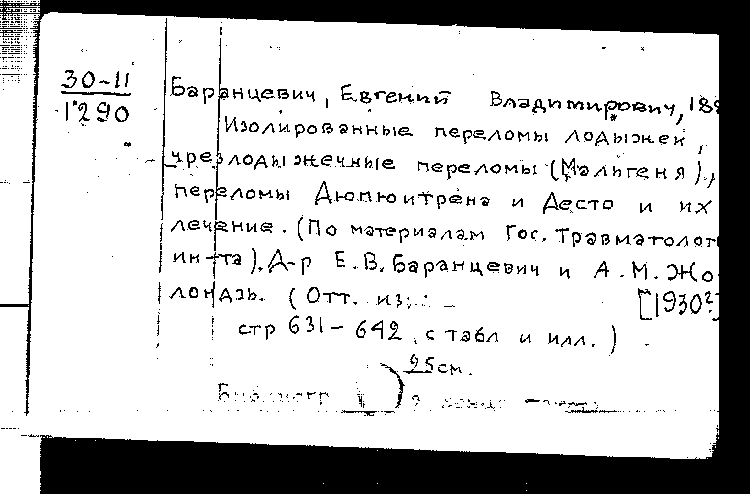 30-11
1290
Баранцевич, Евгений Владимирович, 18
Изолированные переломы лодыжек,
чрезлодыжечные переломы (Мальгеня),
переломы Дюпюитрена и Десто и их
лечение. (По материалам Гос. Травматолог
ин-та). Д-р Е.В. Баранцевич и А.М. Жо-
лондзь. (Отт. из: [1930?]
стр 631-642, с табл и илл.)
25см.